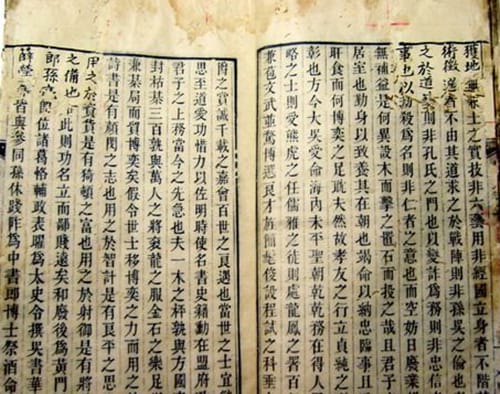 獲地無兼土之實技非六藝用非經國立身者不階
術徵選者不由其道求之於戰陣則非孫吳之倫也
之於道藝則非孔氏之門也以變詐為務則非忠信
事也以劫殺為名則非仁者之意也而空妨日廢業
無補益是何異設木而擊之置石而投之哉且君子
居室也勤身以致養其在朝也竭命以納忠臨事且
旰食而何博奕之足耽夫然故孝友之行立貞純之
彰也方今大吳受命海內未平聖朝乾乾務在得人
略之士則受熊虎之任儒雅之徒則處龍鳳之署百
兼苞文武並騖博選良才旌簡髦俊設程試之科垂
爵之賞誠千載之嘉會百世之良遇也當世之士宜勉
思至道愛功惜力以佐明時使名書史籍勳在盟府
君子之上務當今之先急也夫一木之枰孰與方國
封枯棊三百孰與萬人之將袞龍之服金石之樂足
兼棊局而貿博奕矣假令世士移博奕之力而用之
詩書是有顏閔之志也用之於智計是有良平之思
用之於資貨是有猗頓之富也用之於射御是有將
之備也此則功名立而鄙賤遠矣和廢後為黃門
郎孫即位諸葛恪輔政表曜為太史令撰吳書華
薛瑩皆與參同孫休踐阼為中書郎博士祭酒命